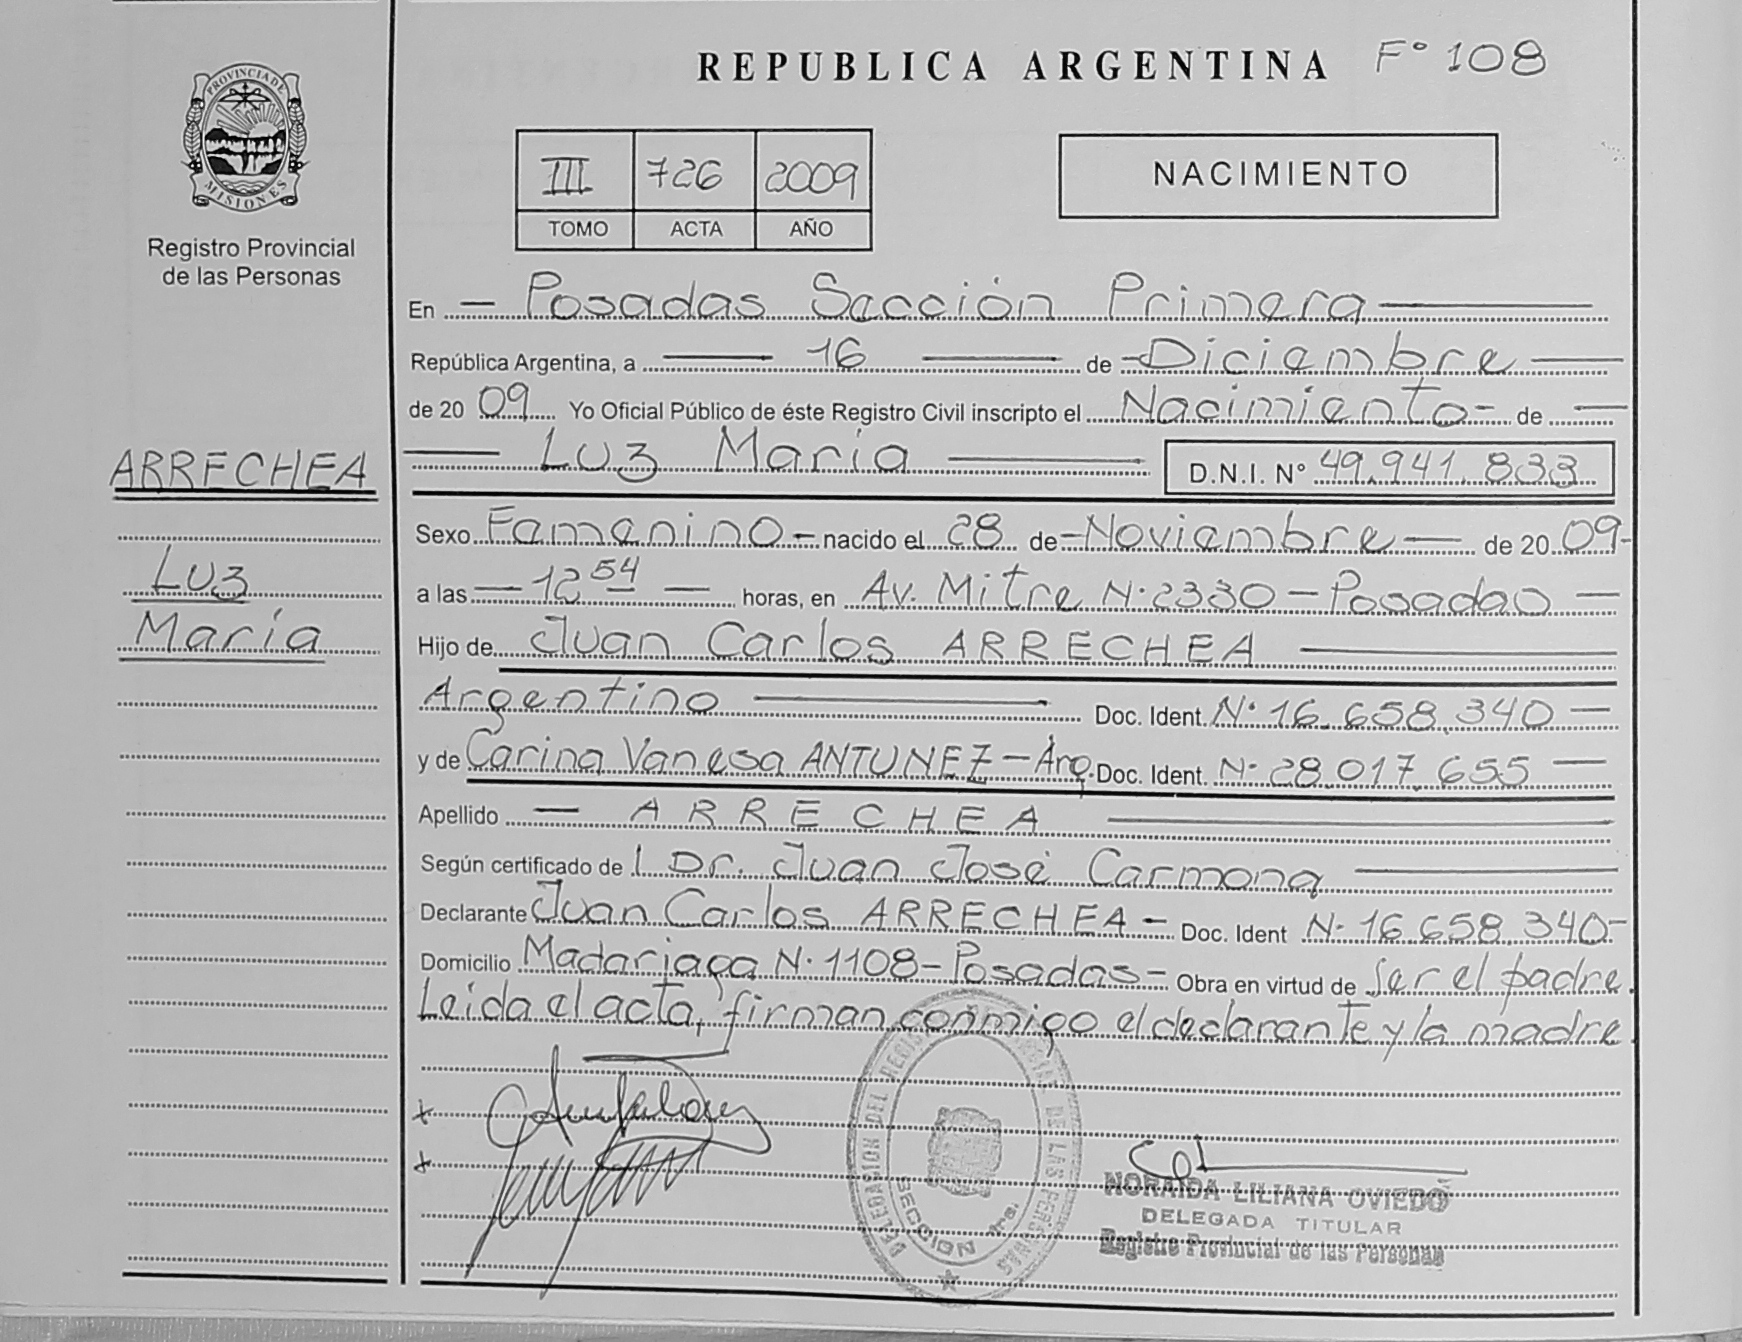 REPUBLICA ARGENTINA F° 108
PROVINCIA DE
MISIONES
Registro Provincial
de las Personas
III 726 2009
TOMO ACTA AÑO
NACIMIENTO
En — Posadas Sección Primera —
República Argentina, a — 16 — de — Diciembre —
de 20 09 Yo Oficial Público de éste Registro Civil inscripto el Nacimiento — de —
— Luz María — D.N.I. N° 49.941.833
ARRECHEA
Luz
María
Sexo Femenino — nacido el 28 de — Noviembre — de 20 09 -
a las — 12 54 — horas, en Av. Mitre N° 2330 — Posadas —
Hijo de Juan Carlos ARRECHEA —
Argentino — Doc. Ident. N° 16.658.340 —
y de Carina Vanesa ANTUNEZ — Arg. Doc. Ident. N° 28.017.655 —
Apellido — ARRECHEA —
Según certificado de l Dr. Juan José Carmona —
Declarante Juan Carlos ARRECHEA — Doc. Ident N° 16.658.340 -
Domicilio Madariaga N° 1108 - Posadas - Obra en virtud de ser el padre.
Leída el acta, firman conmigo el declarante y la madre.
DELEGACION DEL REGISTRO DE LAS PERSONAS
SECCION 1ra.
NORAIDA LILIANA OVIEDO
DELEGADA TITULAR
Registro Provincial de las Personas